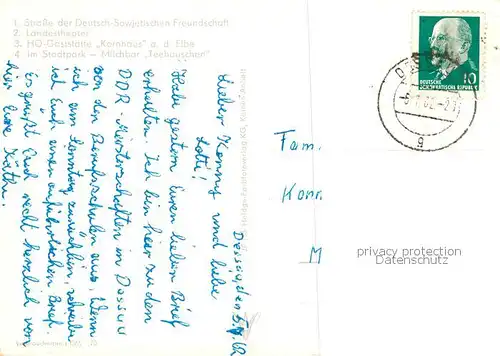 1. Straße der Deutsch-Sowjetischen Freundschaft
2. Landestheater
3. HO-Gaststätte „Kornhaus" a. d. Elbe
4. Im Stadtpark – Milchbar „Teehäuschen"
Dessau, den 5.9.62
Lieber Konny und liebe
Lotti!
Habe gestern Euren lieben Brief
erhalten. Ich bin hier zu den
DDR-Meisterschaften in Dessau
von den Berufsschulen aus. Wenn
ich am Sonntag zurückbin, schreibe
ich Euch einen ausführlichen Brief.
Es grüßt Euch recht herzlich von
hier Eure Käthi.
DEUTSCHE
DEMOKRATISCHE REPUBLIK
10
g
Fam.
Konr.
M
privacy protection
Datenschutz